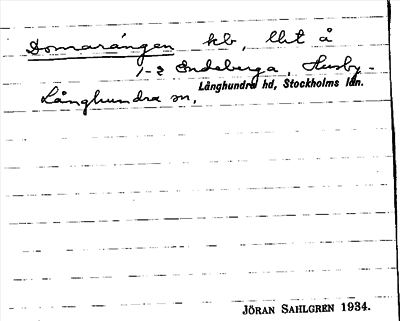 Domarängen kb, llit å
1-2 Indeberga, Husby-
Långhundra sn,
Långhundra hd, Stockholms län.
JÖRAN SAHLGREN 1934.